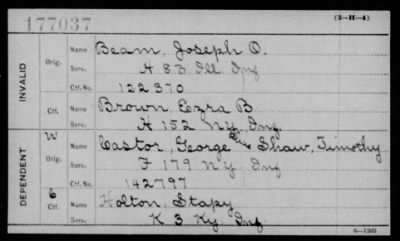 177037 (3-H-4)
INVALID
Orig. Name Beam, Joseph O.
Serv. H 83 Ill Inf
Ctf. No. 122370
Ctf. Name Brown, Ezra B
Serv. H 152 N.Y. Inf.
DEPENDENT
W Orig. Name Castor, George alias Shaw, Timothy
Serv. F 179 N.Y. Inf
Ctf. No. 142797
C Ctf. Name Holton, Stapy
Serv. K 3 Ky. Inf.
6-1303